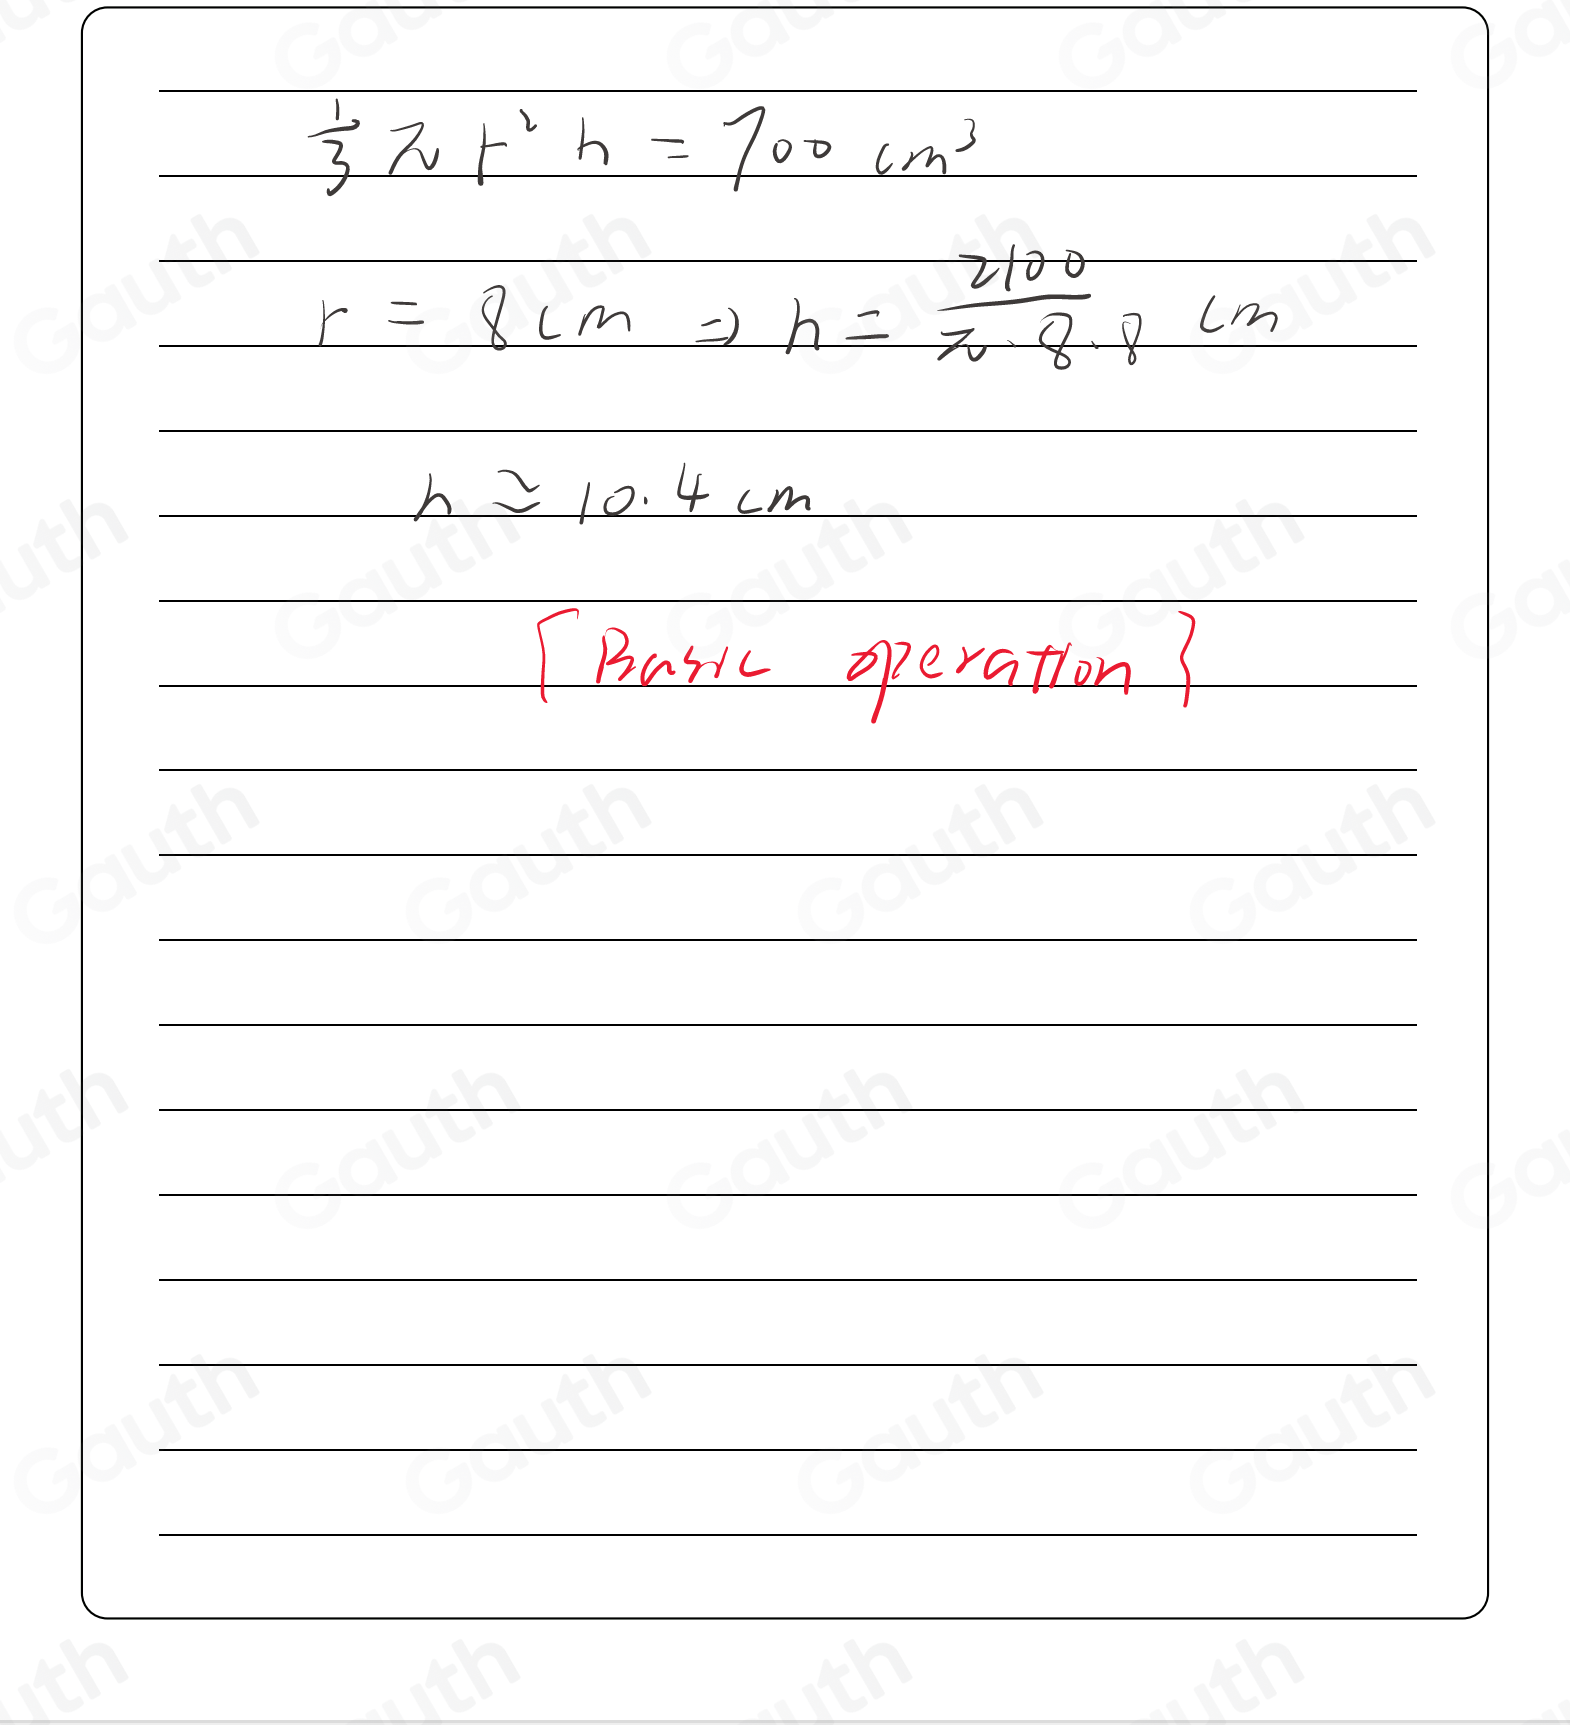 1/3 π r² h = 700 cm³
r = 8 cm ⇒ h = 2100/(π·8·8) cm
h ≈ 10.4 cm
[Basic operation}